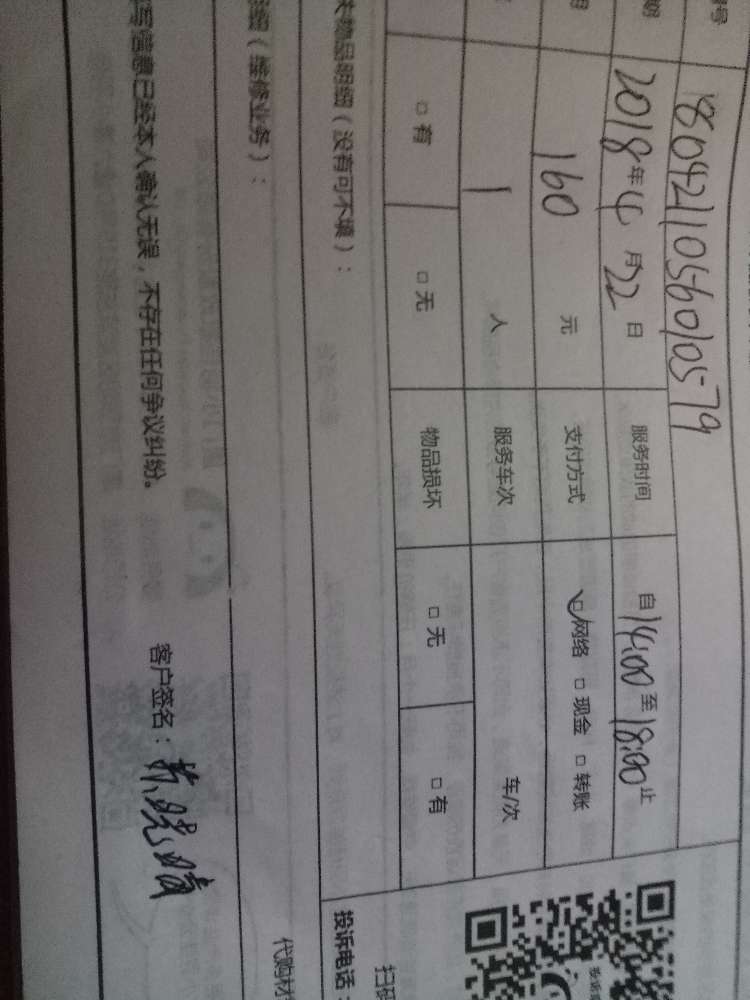 号 1804211056010579
期 2018年4月22日 服务时间 自14:00至18:00止
用 160元 支付方式 ☑网络 □现金 □转账
1人 服务车次 车/次
□有 □无 物品损坏 □无 □有
扫码
物品明细（没有可不填）： 投诉电话：
细（维修业务）： 代购材
写信息已经本人确认无误，不存在任何争议纠纷。 客户签名：